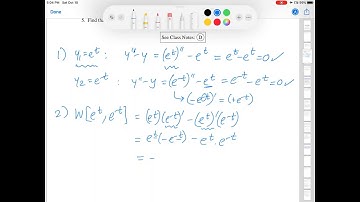 5:04 PM Sat Oct 10
Done
5. Find the
See Class Notes: D
1) y₁=eᵗ : y''-y = (eᵗ)'' - eᵗ = eᵗ-eᵗ = 0 ✓
y₂=e⁻ᵗ : y''-y = (e⁻ᵗ)'' - e⁻ᵗ = e⁻ᵗ-e⁻ᵗ = 0 ✓
↳ (-e⁻ᵗ)' = (+e⁻ᵗ)
2) W[eᵗ, e⁻ᵗ] = (eᵗ)(e⁻ᵗ)' - (eᵗ)'(e⁻ᵗ)
= eᵗ(-e⁻ᵗ) - eᵗ·e⁻ᵗ
= -